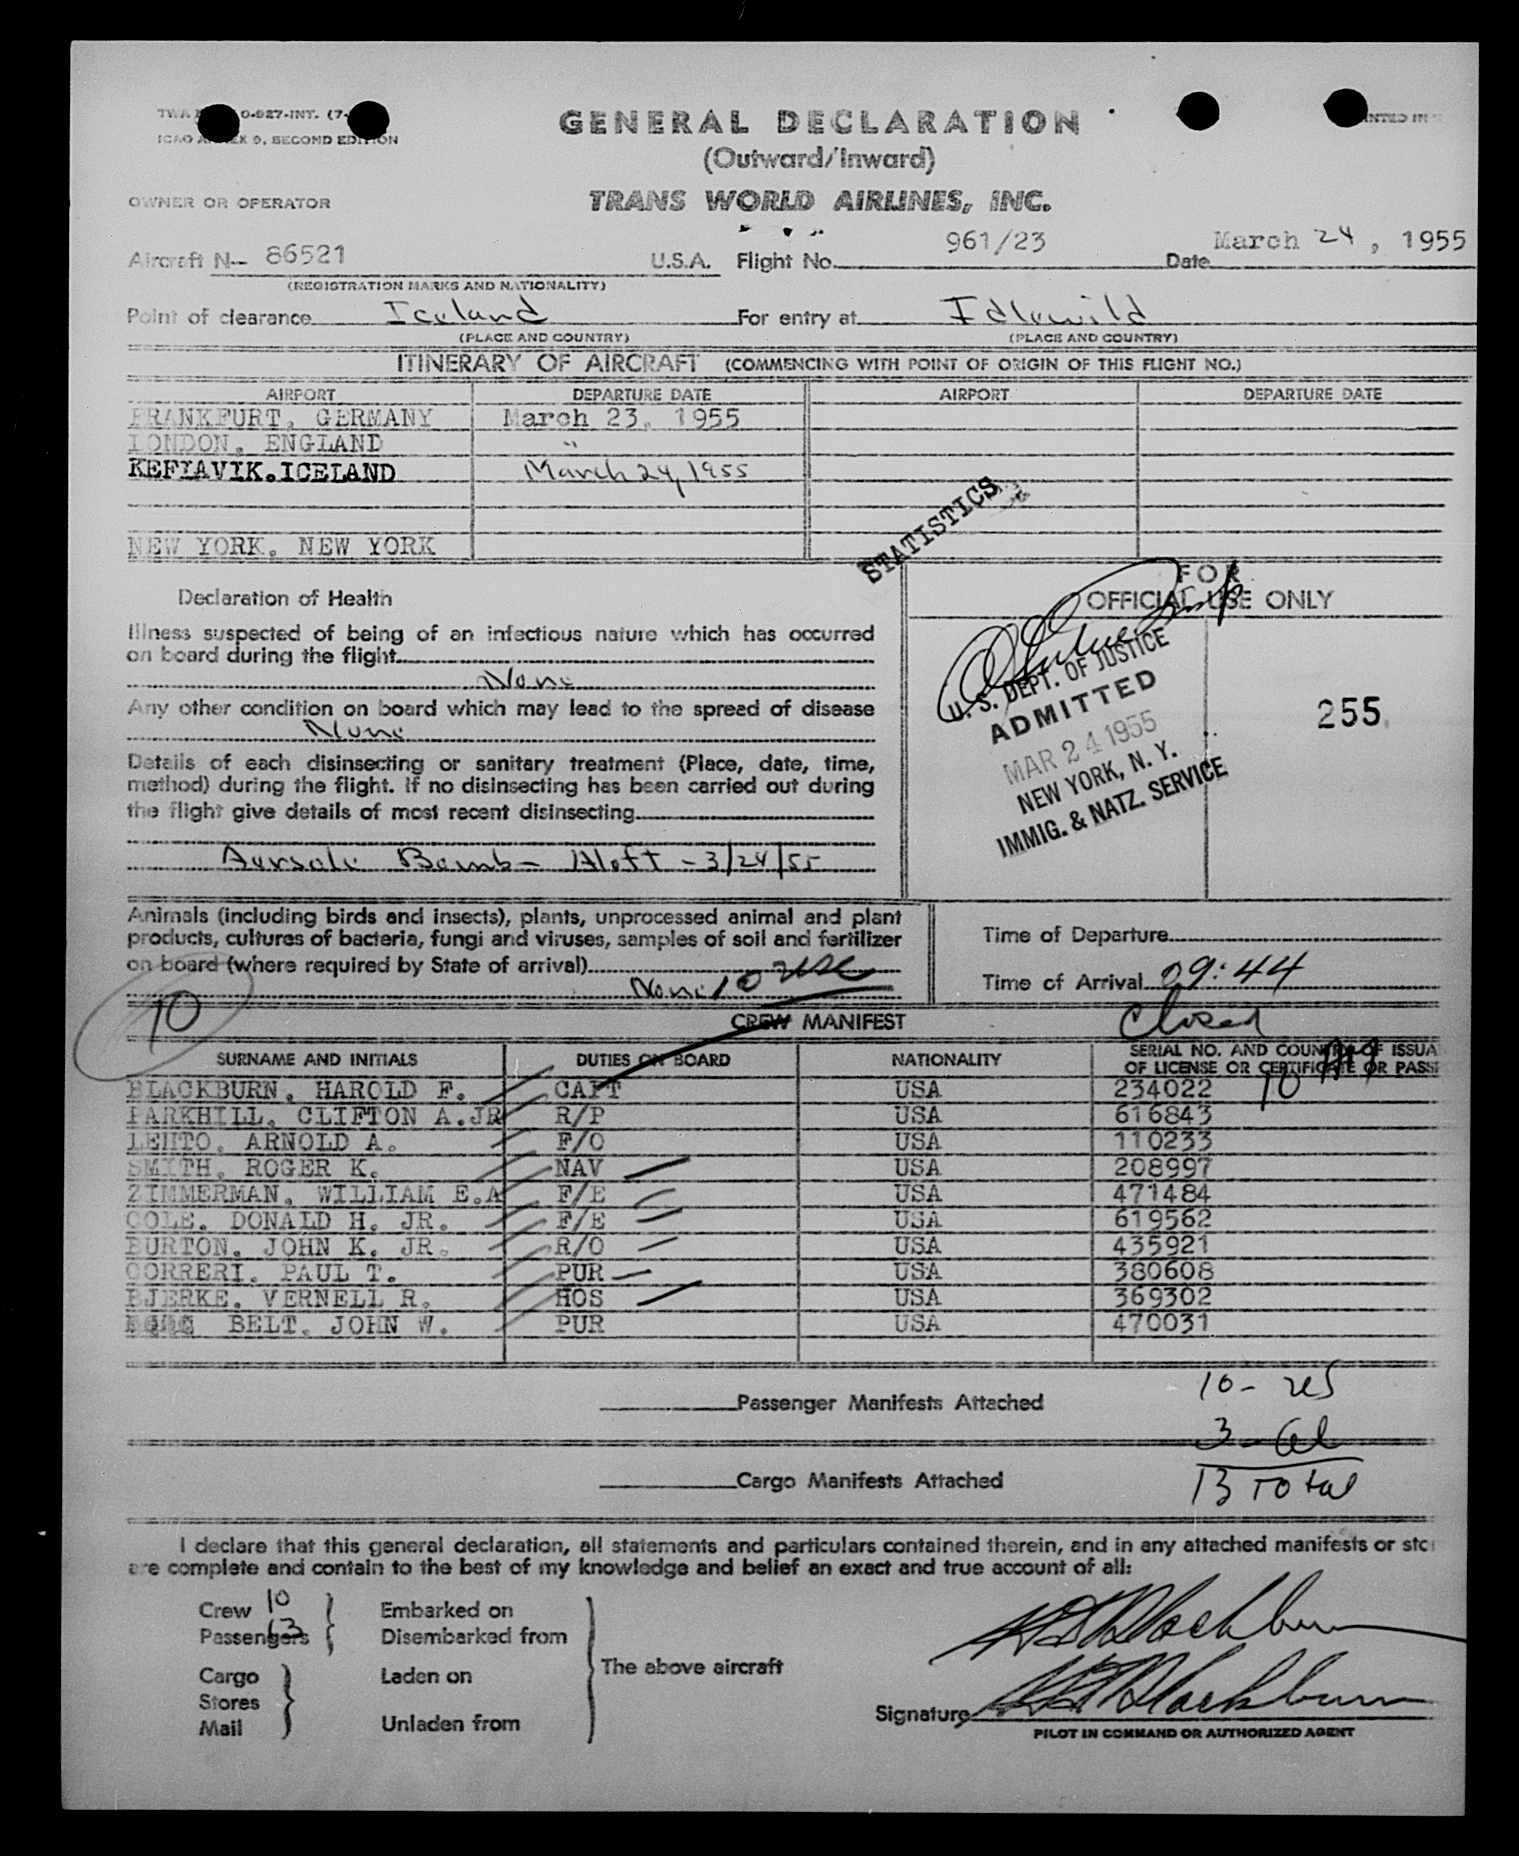 GENERAL DECLARATION
(Outward/Inward)
ICAO ANNEX 9, SECOND EDITION
OWNER OR OPERATOR
TRANS WORLD AIRLINES, INC.
Aircraft N- 86521 U.S.A. Flight No. 961/23 Date March 24, 1955
(REGISTRATION MARKS AND NATIONALITY)
Point of clearance Iceland For entry at Idlewild
(PLACE AND COUNTRY) (PLACE AND COUNTRY)
ITINERARY OF AIRCRAFT (COMMENCING WITH POINT OF ORIGIN OF THIS FLIGHT NO.)
AIRPORT DEPARTURE DATE AIRPORT DEPARTURE DATE
FRANKFURT, GERMANY March 23, 1955
LONDON, ENGLAND "
KEFLAVIK.ICELAND March 24, 1955
NEW YORK, NEW YORK
STATISTICS
FOR
OFFICIAL USE ONLY
Declaration of Health
Illness suspected of being of an infectious nature which has occurred
on board during the flight
None
Any other condition on board which may lead to the spread of disease
None
Details of each disinsecting or sanitary treatment (Place, date, time,
method) during the flight. If no disinsecting has been carried out during
the flight give details of most recent disinsecting
Aersole Bomb - Aloft - 3/24/55
U. S. DEPT. OF JUSTICE
ADMITTED
MAR 24 1955
NEW YORK, N. Y.
IMMIG. & NATZ. SERVICE
255
Animals (including birds and insects), plants, unprocessed animal and plant
products, cultures of bacteria, fungi and viruses, samples of soil and fertilizer
on board (where required by State of arrival)
None 10 usc
Time of Departure
Time of Arrival 09:44
Closed
10
CREW MANIFEST
SURNAME AND INITIALS DUTIES ON BOARD NATIONALITY SERIAL NO. AND COUNTRY OF ISSUA
OF LICENSE OR CERTIFICATE OR PASS
10
BLACKBURN, HAROLD F. CAPT USA 234022
PARKHILL, CLIFTON A.JR R/P USA 616843
LEHTO, ARNOLD A. F/O USA 110233
SMITH, ROGER K. NAV USA 208997
ZIMMERMAN, WILLIAM E.A F/E USA 471484
COLE, DONALD H. JR. F/E USA 619562
BURTON, JOHN K. JR. R/O USA 435921
CORRERI, PAUL T. PUR USA 380608
BJERKE, VERNELL R. HOS USA 369302
BELT, JOHN W. PUR USA 470031
Passenger Manifests Attached
10 -
3 - al
13 Total
Cargo Manifests Attached
I declare that this general declaration, all statements and particulars contained therein, and in any attached manifests or sto
are complete and contain to the best of my knowledge and belief an exact and true account of all:
Crew 10 Embarked on
Passengers 13 Disembarked from
The above aircraft
Cargo Laden on
Stores
Mail Unladen from
HF Blackburn
Signature HF Blackburn
PILOT IN COMMAND OR AUTHORIZED AGENT